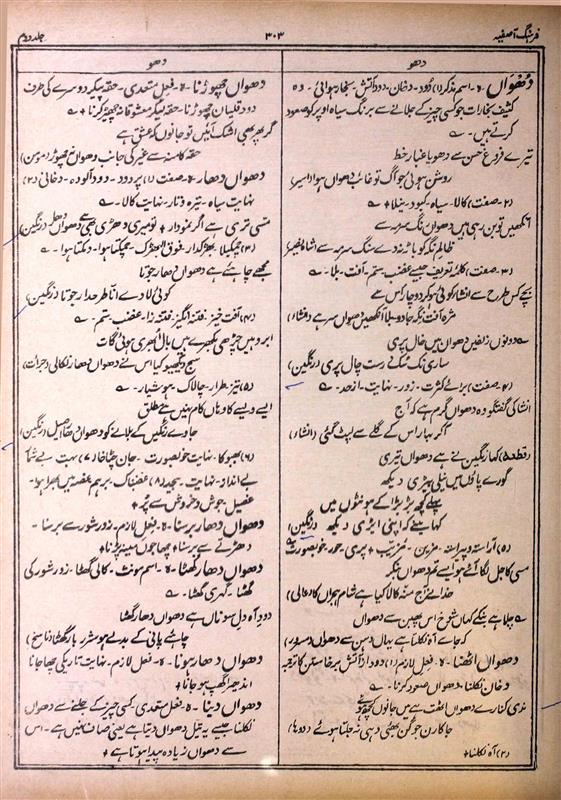 فرہنگ آصفیہ
۳۰۳
جلد دوم
دھو
دُھواں۔ ہ۔ اسم مذکر (۱) دُود۔ دخان۔ دود آتش۔ بخار ہوائی۔ وہ
کثیف بخارات جو کسی چیز کے جلانے سے برنگ سیاہ اوپر کو صعود
کرتے ہیں۔ ؎
تیرے فروغ حسن سے دھویا غبار خط
روشن ہوئی جو آگ تو غائب دھواں ہوا (اسیر)
(۲۔ صفت) کالا۔ سیاہ۔ کبود۔ نیلا ٭ ؎
آنکھیں تو بن رہی ہیں دھواں رنگ سرمہ سے
ظالم نگہ کو باڑ نہ دے سنگ سرمہ سے
(۳۔ صفت) کلمۂ تعریف جیسے غضب۔ ستم۔ آفت۔ بلا۔ ؎
بچے کس طرح سے افشا کوئی ہو کر دو چار اس سے
مژہ آفت نگہ جادو بلا آنکھیں دھواں سرمہ (انشاء)
؎ دونوں زلفیں دھواں ہیں خال پری
ساری رنگت ہے رست چال پری (رنگین)
(۴۔ صفت) برائے کثرت۔ زور۔ نہایت۔ ازحد۔ ؎
انشا کی گفتگو وہ دھواں گرم ہے کہ آج
آ کر بہار اس کے گلے سے لپٹ گئی (انشاء)
(قطعہ) کہا رنگین نے ہے دھواں تیری
گورے پاؤں میں نیلی پیڑی دیکھ
پہلے کچھ بڑبڑا کے ہونٹوں میں
کہا ہنسکے اپنی ایڑی دیکھ (رنگین)
(۵) آراستہ و پیراستہ۔ مزین۔ مرتب ٭ پری۔ حور۔ خوبصورت ؎
مسی کاجل لگا آئے ہو ایسے تم دھواں بنکر
خدا نے آج منہ کالا کیا ہے شام ہجراں کا (عالی)
؎ چلا ہے بنکے کہاں شوخ اس پھبن سے دھواں
کہ جائے آہ نکلتا ہے یہاں دہن سے دھواں (سرور)
دھواں اٹھنا۔ ہ۔ فعل لازم (۱) دود از آتش برخاستن کا ترجمہ
دخان نکلنا۔ دھواں صعود کرنا۔ ؎
ندی کنارے دھواں اٹھت ہے میں جانوں کچھ ہوئے
جا کارن جوگن بھئی وہی نہ جلتا ہوئے (دوہا)
(۲) آہ نکلنا ٭
دھو
دھواں چھوڑنا۔ ہ۔ فعل متعدی۔ حقہ پیکر دوسرے کی طرف
دود قلیان چھوڑنا۔ حقہ پیکر معشوقانہ چھیڑ کرنا ٭ ؎
گر پھر بھی اشک آئیں تو جانوں کہ عشق ہے
حقہ کا منہ سے غیر کی جانب دھواں نہ چھوڑ (مومن)
دھواں دھار۔ ہ۔ صفت (۱) پر دود۔ دود آلودہ۔ دخانی (۲)
نہایت سیاہ۔ تیرہ و تار۔ نہایت کالا۔ ؎
مسی تری ہے اگر نمودار ٭ تو میری دھڑی بھی ہے دھواں دھار (رنگین)
(۳) چمکیلا۔ بھڑکدار۔ فوق البھڑک۔ چمکتا ہوا۔ دمکتا ہوا۔ ؎
مجھے چاہئے ہے دھواں دھار جوتا
کوئی لادے اتا طرحدار جوتا (رنگین)
(۴) آفت خیز۔ فتنہ انگیز۔ فتنہ زا۔ غضب۔ ستم۔ ؎
ابرو ہیں چڑھی بکھرے ہیں بال لٹ دھری ہوئی گات
سج دیکھیو کیا اس نے دھواں دھار نکالی (جرات)
(۵) تیز۔ طرار۔ چالاک۔ ہوشیار۔ ؎
ایسے ویسے کا وہاں کام نہیں ہے مطلق
جاوے رنگین کے بلانے کو دھواں دھار اصیل (رنگین)
(۶) بھبوکا۔ نہایت خوبصورت۔ جان چٹاخا (۷) بہت۔ بے شمار
بے انداز۔ نہایت۔ بیحد (۸) غضبناک۔ برہم۔ غصہ میں بھرا ہوا۔
غصیل۔ جوش و خروش سے پُر ٭
دھواں دھار برسنا۔ ہ۔ فعل لازم۔ زور شور سے برسنا۔
دھڑلے سے برسنا ٭ چھاجوں مینہ پڑنا ٭
دھواں دھار گھٹا۔ ہ۔ اسم مونث۔ کالی گھٹا۔ زور شور کی
گھٹا۔ گہری گھٹا۔ ؎
دود آہ دل سوزاں ہے دھواں دھار گھٹا
چاہئے پانی کے بدلے ہو شرر بار گھٹا (ناسخ)
دھواں دھار ہونا۔ ہ۔ فعل لازم۔ نہایت تاریکی چھا جانا
اندھیرا گھپ ہو جانا ٭
دھواں دینا۔ ہ۔ فعل متعدی۔ کسی چیز کے جلنے سے دھواں
نکلنا جیسے یہ تیل دھواں دیتا ہے یعنی صاف نہیں ہے۔ اس
سے دھواں زیادہ پیدا ہوتا ہے ٭